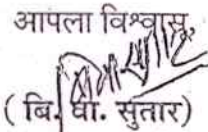 आपला विश्वासू,
( बि. वा. सुतार)